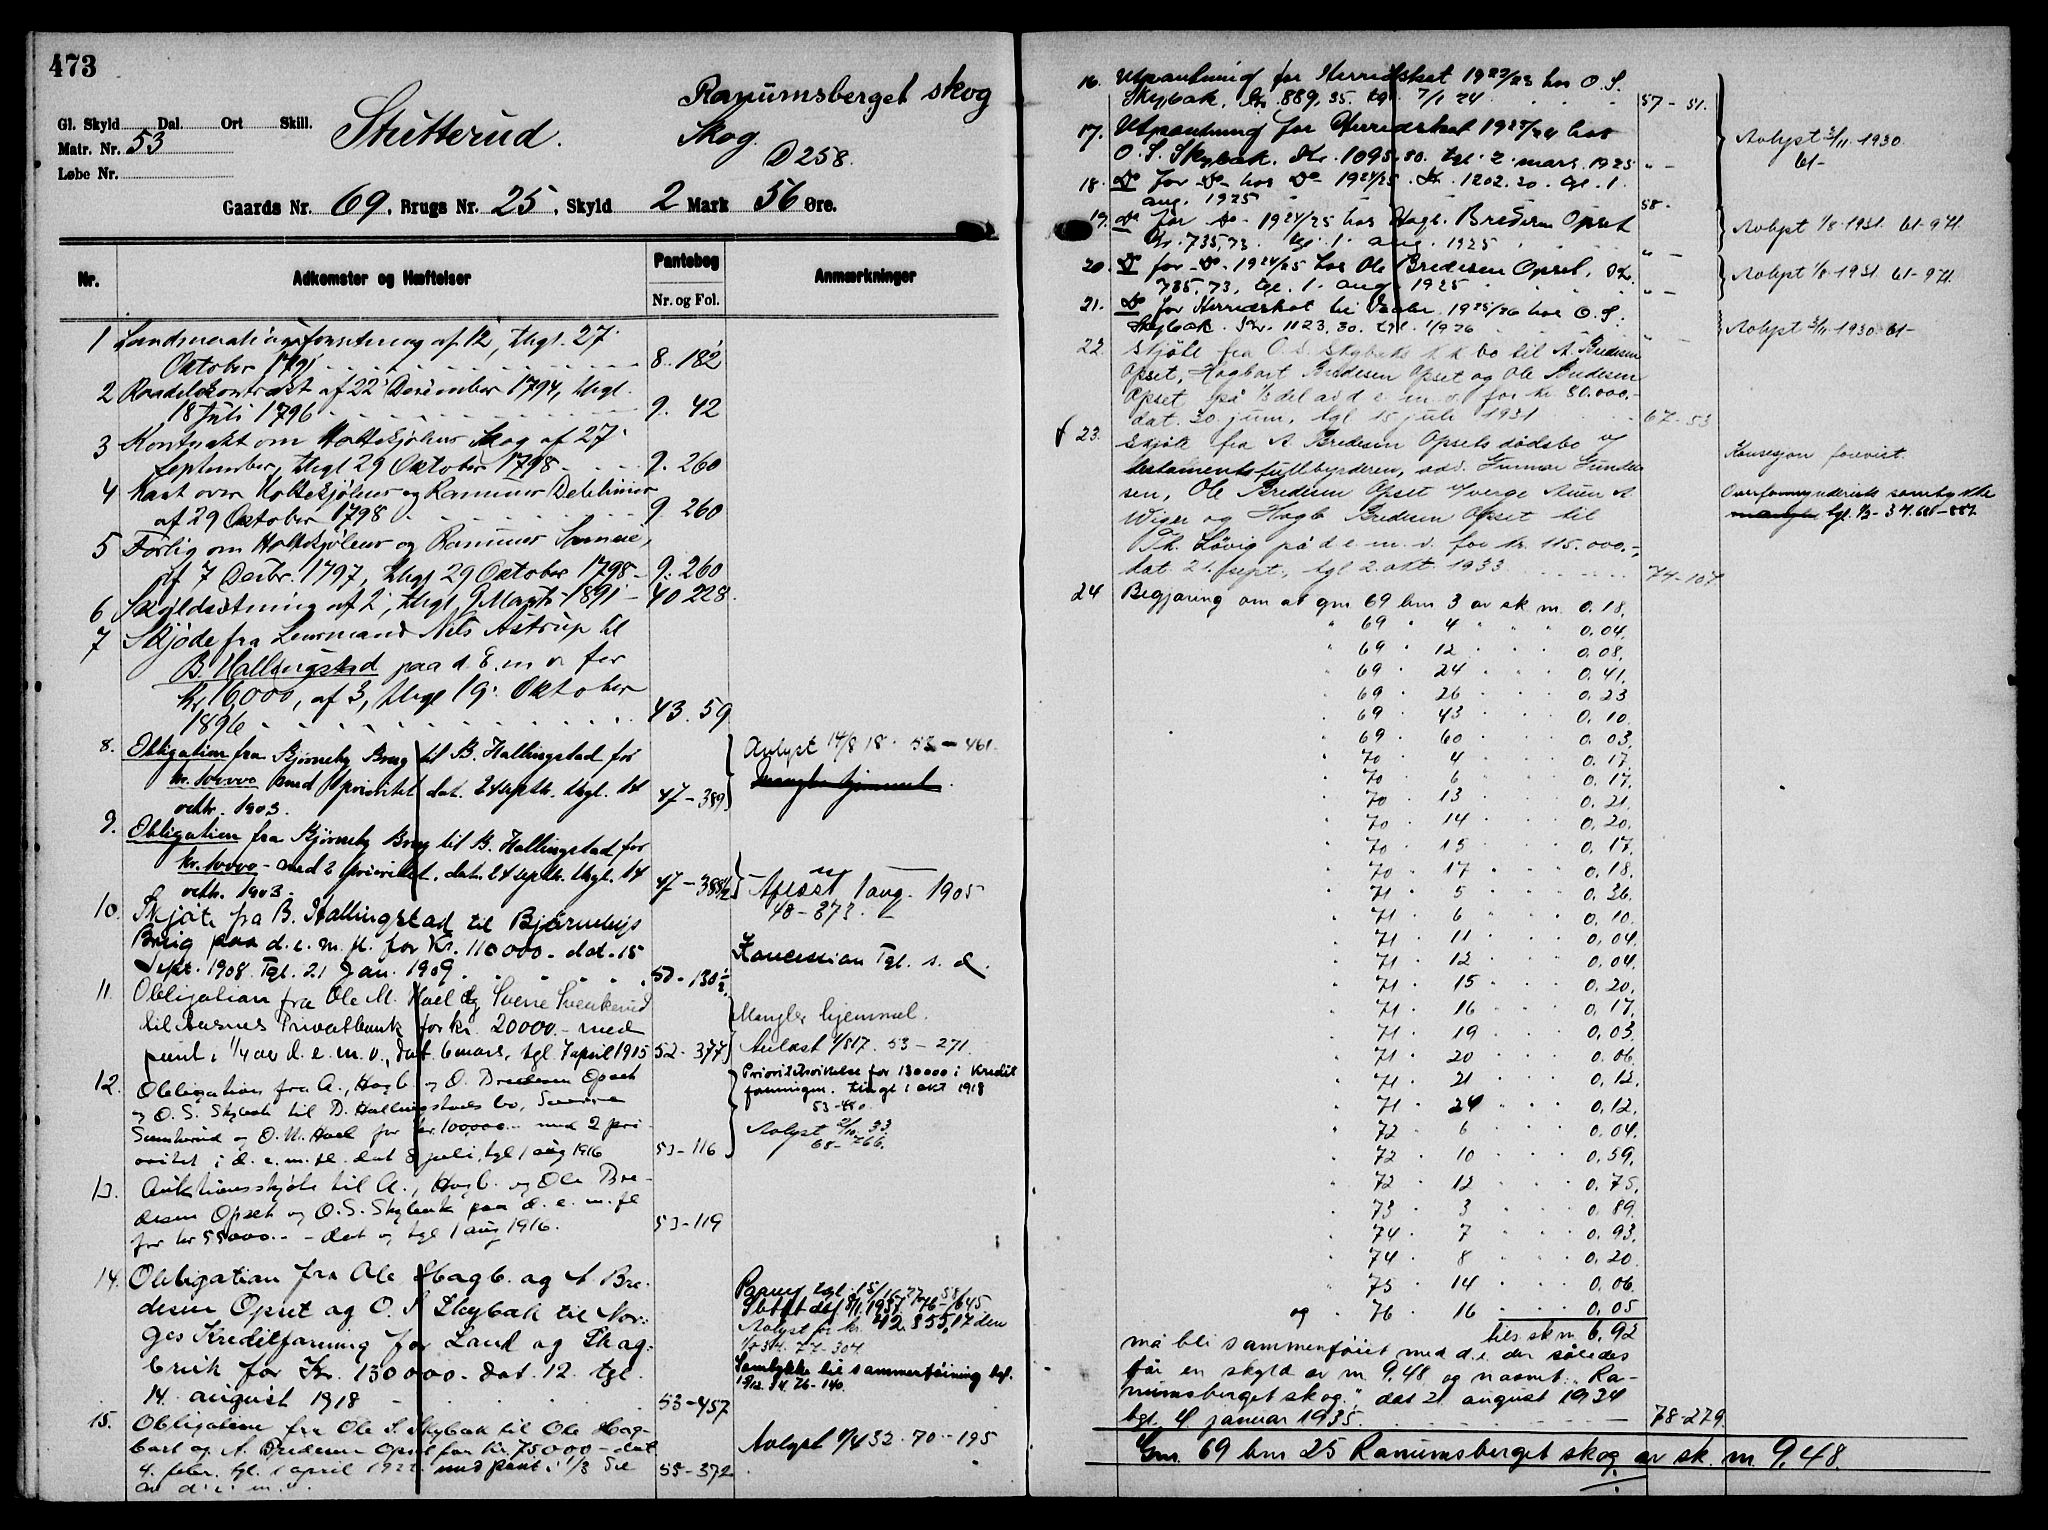 473
Ranumsberget skog
Gl. Skyld Dal. Ort Skill.
Stutterud. Skog.
Matr. Nr. 53
D 258.
Løbe Nr.
Gaards Nr. 69, Brugs Nr. 25, Skyld 2 Mark 56 Øre.
Nr. Adkomster og Hæftelser Pantebog Anmærkninger
Nr. og Fol.
1 af 12, thgl. 27
Oktober 1791 8. 182
2 af 22 December 1794, thgl.
18 Juli 1796 9. 42
3 Kontrakt om Holtesjølens Skog af 27
September, thgl 29 Oktober 1798 9. 260
4 Kart over Holtesjølens og Ranumer
af 29 Oktober 1798 9. 260
5 Forlig om Holtesjølens og Ranumer Sameie,
af 7 Decbr. 1797, thgl 29 Oktober 1798 9. 260
6 Skyldsætning af 2, thgl 9 Marts 1891 40 228.
7 Skjøde fra Nils Astrup til
B. Hallingstad paa d. E. m v for
kr 16,000, af 3, thgl 19. Oktober
1896 43. 59
8. Obligation fra Bjørneby Brug til B. Hallingstad for
kr. 10000 med 1 prioritet dat. 24 septbr. thgl. 14
octbr. 1903. 47-389
Avlyst 14/8 18. 53-461.
Mangler hjemmel.
9. Obligation fra Bjørneby Brug til B. Hallingstad for
kr. 10000 - med 2 prioritet. dat. 24 septbr. thgl. 14
octbr. 1903. 47-388½
Aflæst 1 aug. 1905
48-373.
10. Skjøte fra B. Hallingstad til Bjørnebys
Brug paa d. e. m. fl. for Kr. 110000. dat. 15
Sept. 1908. Tgl. 21 Jan. 1909. 50-130½
Koncession Tgl. s. d.
11. Obligation fra Ole M. Hoel og Sverre Svenkerud
til Aasnes Privatbank for kr. 20000.- med
pant i 1/4 av d. e. m. v., dat 6 mars, tgl 7 april 1915 52-377
Mangler hjemmel.
Avlæst 1/8 17. 53-271.
12. Obligation fra A., Hagb. og O. Bredesen Opset
og O. S. Skybak til B. Hallingstads bo, Sverre
Svenkerud og O. M. Hoel for kr. 100,000.- med 2 pri-
oritet i d. e. m. fl. dat 8 juli, tgl 1 aug 1916 53-116
Prioritetsvikelse for 130000 i Kredit
foreningen. tinglt 1 okt 1918
53-480.
Avlyst 2/10 33
68-766.
13. Auktionsskjøte til A., Hagb. og Ole Bre-
desen Opset og O. S. Skybak paa d. e. m. fl
for kr 55000.- - dat og tgl 1 aug 1916. 53-119
14. Obligation fra Ole Hagb. og A Bre-
desen Opset og O. S Skybak til Nor-
ges Kreditforening for Land og Skog-
bruk for Kr. 130000. dat. 12. tgl.
14. august 1918 53-457
Avlyst for kr. 42.855,17 den
77-304
Samtykke til sammenføining tgl.
19/12 34. 76-140.
15. Obligation fra Ole S. Skybak til Ole Hag-
bart og A. Bredesen Opset for kr. 75000 - dat
4. febr. tgl. 1 april 1922 med pant i 1/3 del
av d. e. m. v. 55-372
Avlyst 1/4 32. 70-195
16. Utpantning for Herredskat 1922/23 hos O. S.
Skybak. Kr. 889,35. tgl. 7/1 24 57-51.
17. Utpantning for Herredskat 1923/24 hos
O. S. Skybak. Kr. 1095.80. tgl. 2. mars. 1925 " -
Avlyst 3/11 1930
61-
18. Do for -Do- hos Do- 1924/25. Kr. 1202.20. tgl. 1.
aug. 1925 58-
19. Do for -Do- 1924/25 hos Hagb. Bredesen Opset
Kr. 735,73. tgl. 1. aug. 1925 " -
Avlyst 1/8 1931. 61-971.
20. Do for -Do- 1924/25 hos Ole Bredesen Opset, Kr.
735,73, tgl. 1. aug. 1925 " -
Avlyst 1/8 1931 61-971.
21. Do for Herredskat til Vaaler 1925/26 hos O. S.
Skybak. Kr. 1123,30. tgl. 1/9 26 " -
Avlyst 3/11 1930. 61-
22. Skjøte fra O. S. Skybaks k.k. bo til A. Bredesen
Opset, Hagbart Bredesen Opset og Ole Bredesen
Opset på 1/3 del av d. e. m. v. for kr 80.000,-
dat. 30. juni, tgl 15 juli 1931 67-53
23. Skjøte fra A. Bredesen Opsets dødsbo v/
testamentsfullbyrderen, adv. Gunnar Gunder
sen, Ole Bredesen Opset v/verge Auen A
Wiger og Hagb Bredesen Opset til
Th. Løvig på d. e. m. v. for kr. 115.000.-,
dat. 21. sept., tgl 2. okt. 1933 74-107
Konsesjon forevist.
Overformynderiets samtykke
mangler
24 Begjæring om at gnr 69 bnr 3 av sk m. 0.18.
" 69 " 4 " " 0.04.
" 69 " 12 " " 0.08.
" 69 " 24 " " 0.41.
" 69 " 26 " " 0.23
" 69 " 43 " " 0.10.
" 69 " 60 " " 0.03.
" 70 " 4 " " 0.17.
" 70 " 6 " " 0.17.
" 70 " 13 " " 0.21.
" 70 " 14 " " 0.20.
" 70 " 15 " " 0.17.
" 70 " 17 " " 0.18.
" 71 " 5 " " 0.36.
" 71 " 6 " " 0.10.
" 71 " 11 " " 0.04.
" 71 " 12 " " 0.04.
" 71 " 15 " " 0.20.
" 71 " 16 " " 0.17.
" 71 " 19 " " 0.03.
" 71 " 20 " " 0.06.
" 71 " 21 " " 0.12.
" 71 " 24 " " 0.12.
" 72 " 6 " " 0.04.
" 72 " 10 " " 0.59.
" 72 " 12 " " 0.75.
" 73 " 3 " " 0.89.
" 74 " 7 " " 0.93.
" 74 " 8 " " 0.20.
" 75 " 14 " " 0.06.
og " 76 " 16 " " 0.05
tils sk m. 6,92
må bli sammenføiet med d. e. der således
får en skyld av m 9.48 og navnet: "Ra-
numsberget skog", dat 21 august 1934
tgl. 4 januar 1935. 78-279
Gnr. 69 bnr 25 Ranumsberget skog av sk. m 9,48.